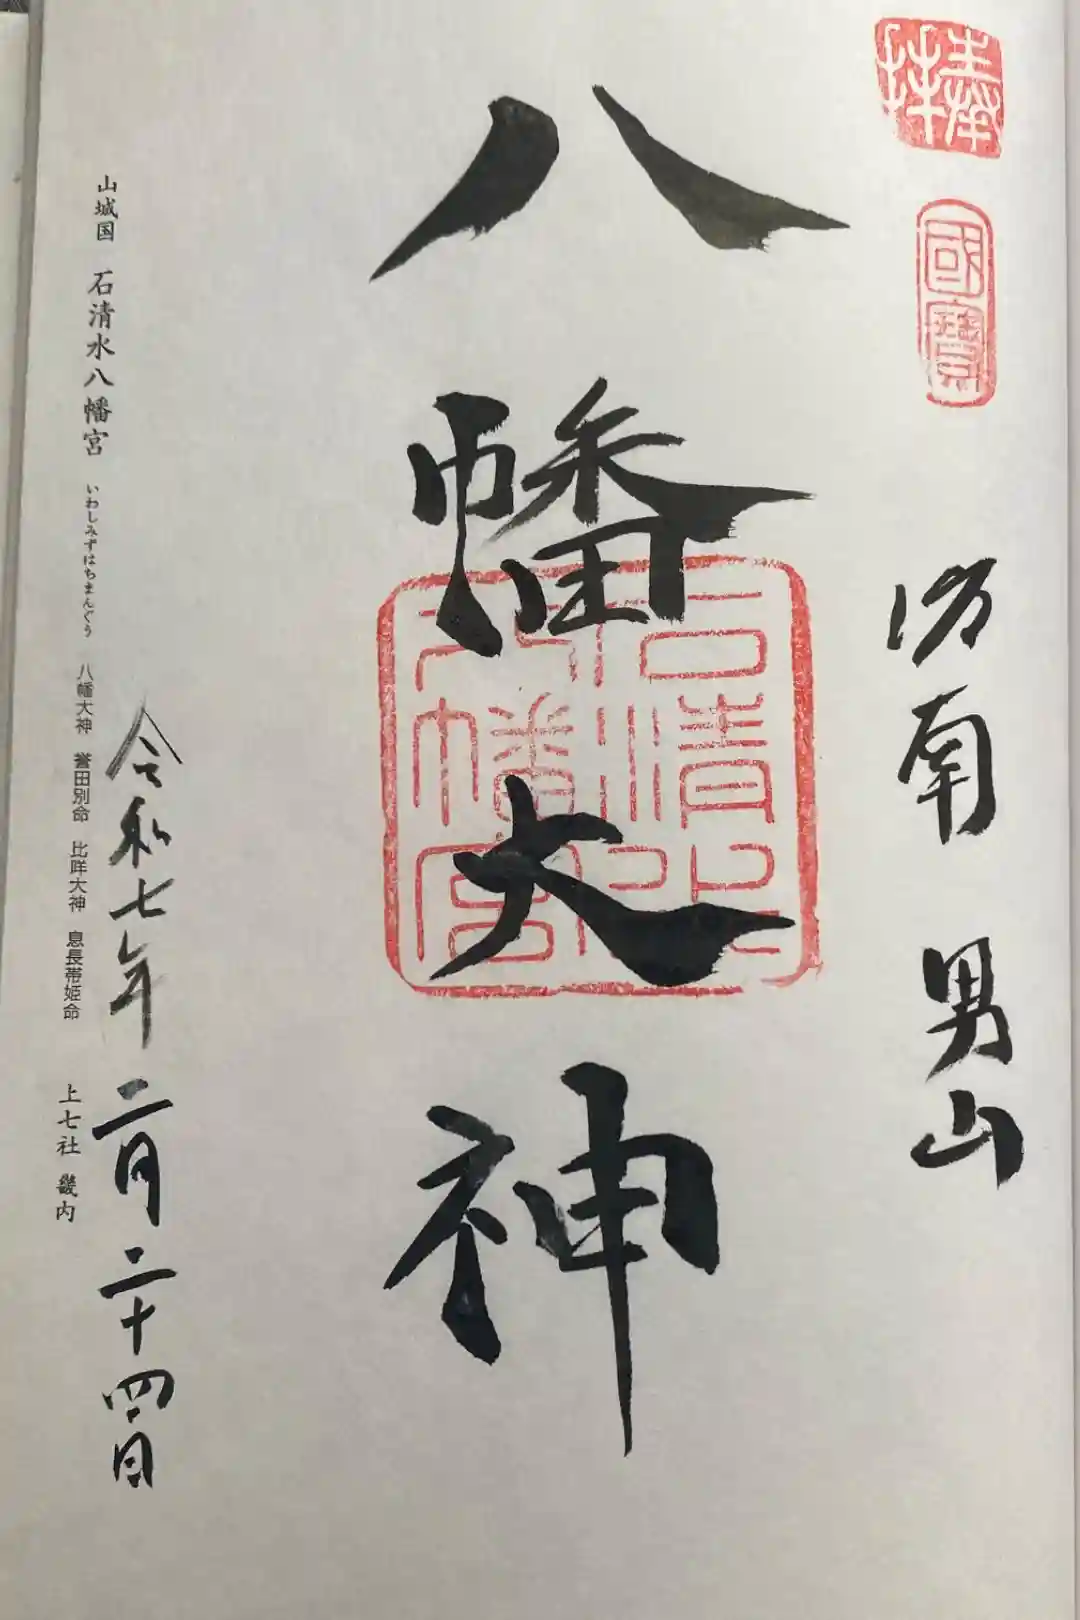 奉拝
國寶
南 男山
八幡大神
石清水八幡宮
令和七年二月二十四日
山城国 石清水八幡宮 いわしみずはちまんぐう 八幡大神 誉田別命 比咩大神 息長帯姫命 上七社 畿内